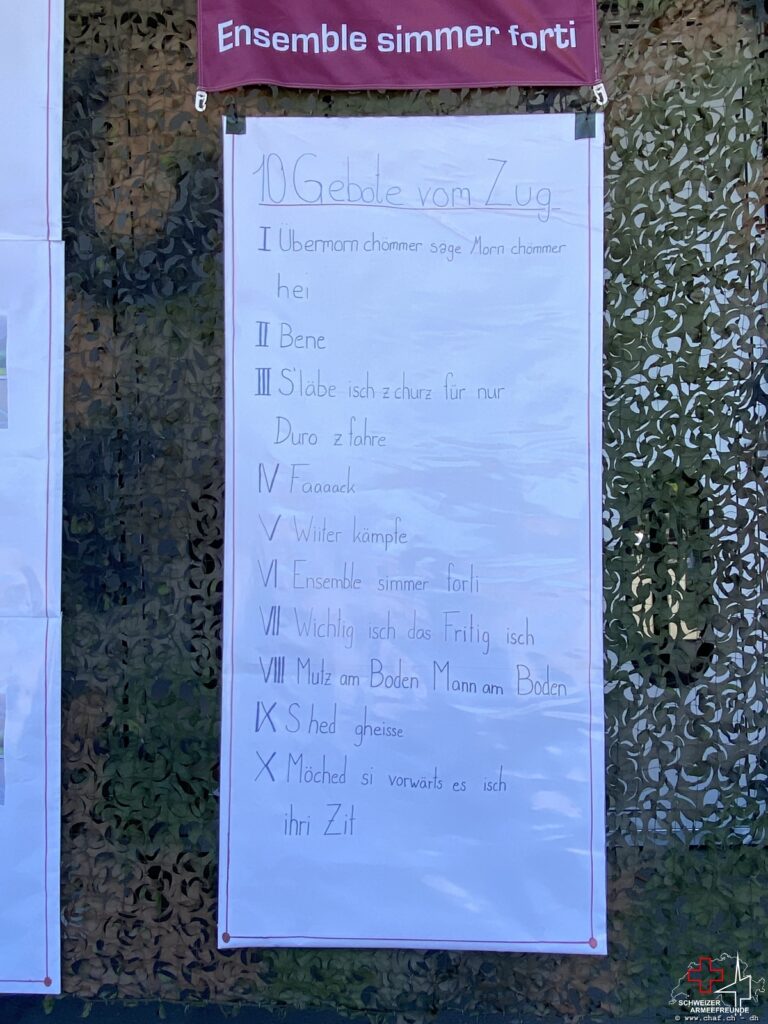 Ensemble simmer forti
10 Gebote vom Zug
I Übermorn chömmer sage Morn chömmer
hei
II Bene
III S'läbe isch z churz für nur
Duro z fahre
IV Faaaack
V Wiiter kämpfe
VI Ensemble simmer forti
VII Wichtig isch das Fritig isch
VIII Mutz am Boden Mann am Boden
IX S hed gheisse
X Möched si vorwärts es isch
ihri Zit
SCHWEIZER
ARMEEFREUNDE
© www.chaf.ch - dh